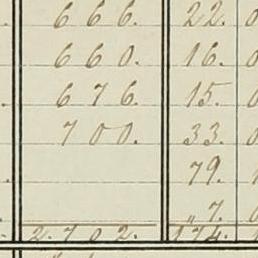 666. 22.
660. 16.
676. 15.
700. 33.
79.
„ 7.
2.702. 174.